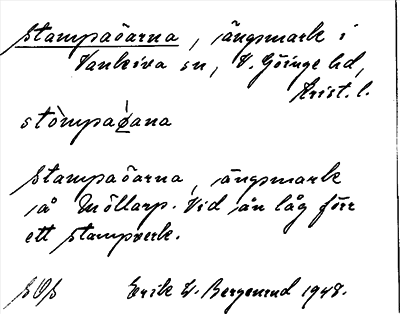 Stampaöarna, ängsmark i
Vankiva sn, V. Göinge hd,
Krist. l.
stòmpaøana
Stampaöarna, ängsmark
på Möllarp. Vid ån låg förr
ett stampverk.
Erik W. Bergenrud 1948.